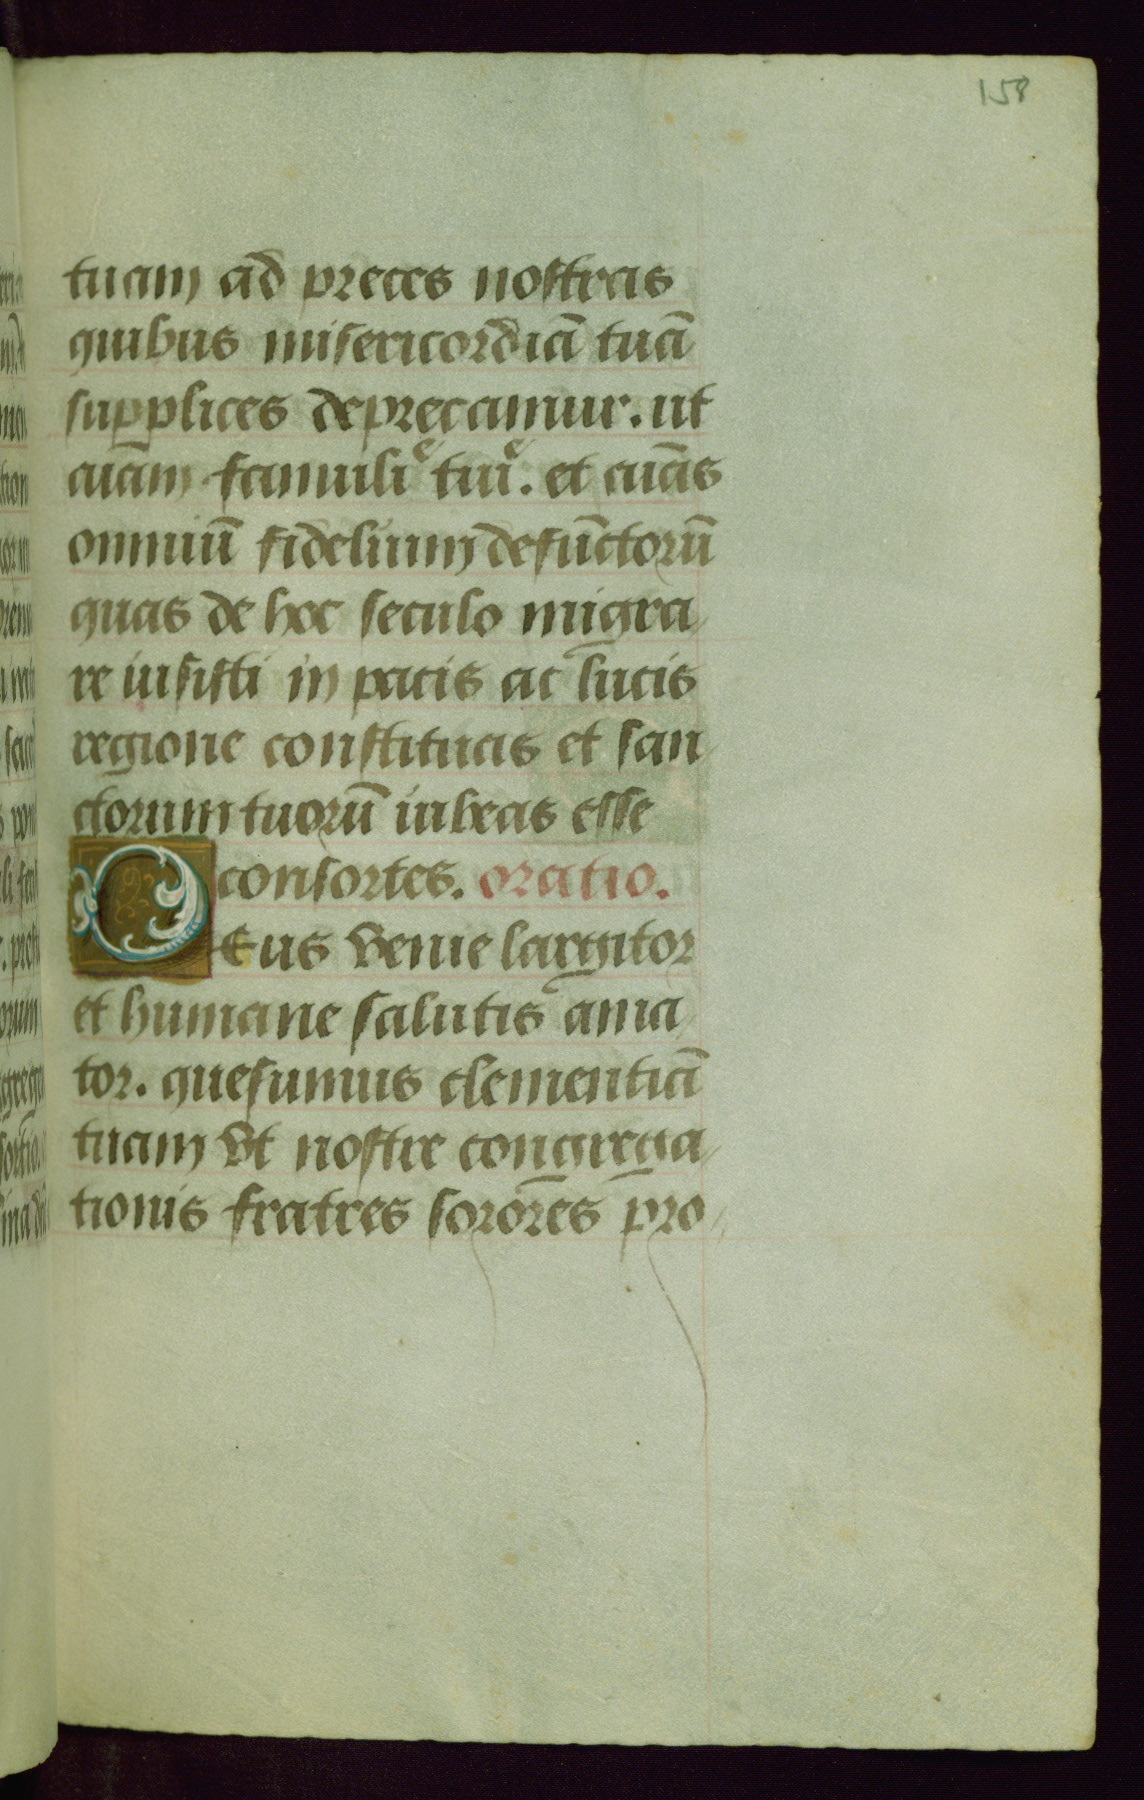 158
tuam ad preces nostras
quibus misericordiā tuā
supplices deprecamur. ut
aīam famuliͤ tuiͤ. et aīas
omniū fidelium defūctorū
quas de hoc seculo migra
re iusisti in pacis ac lucis
regione constituas et san
ctorum tuorū iubeas esse
consortes. oratio.
Deus venie largitor
et humane salutis ama
tor. quesumus clementiā
tuam vt nostre congrega
tionis fratres sorōres pro